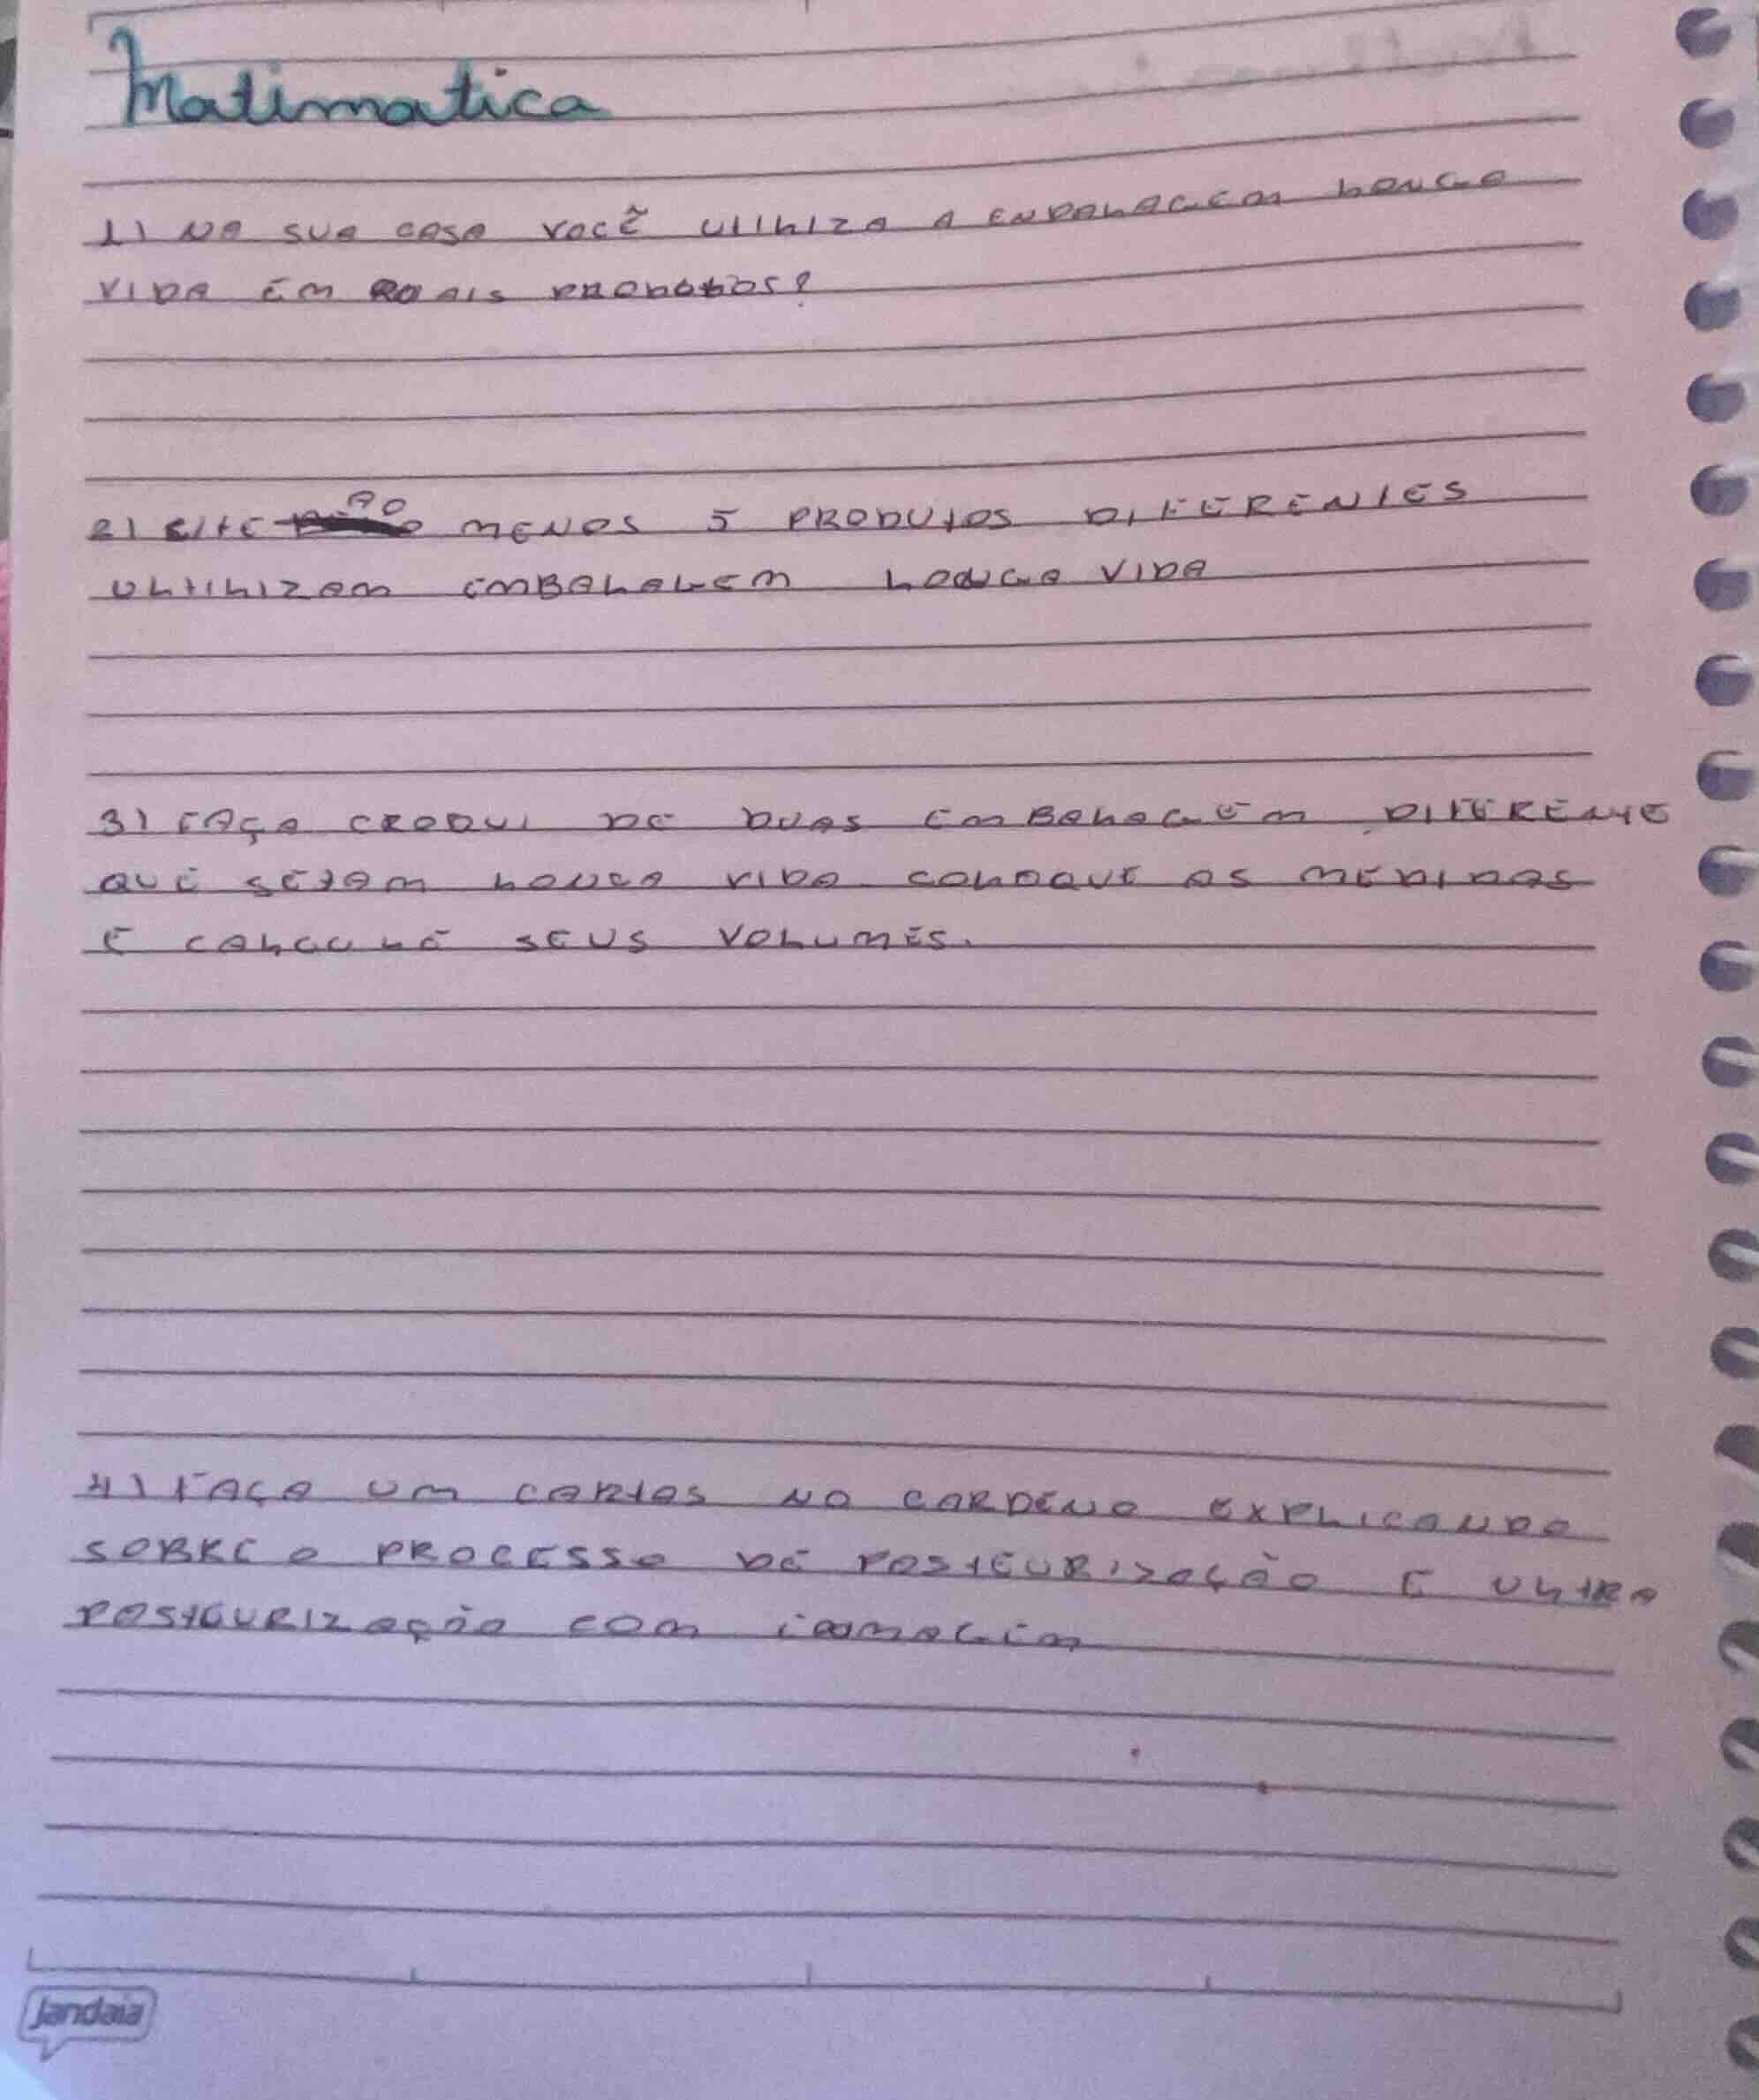 Matimatica
1) NA SUA CASA VOCÊ UTILIZA A ENBALAGEM LONGA
VIDA EM QUAIS PRODUTOS?
2) CITE AO MENOS 5 PRODUTOS DIFERENTES
ULTILIZAM EMBALAGEM LONGA VIDA
3) FAÇA CROQUI DE DUAS EMBALAGEM DIFERENTE
QUE SEJAM LONGA VIDA COLOQUE AS MEDIDAS
E CALCULE SEUS VOLUMES.
4) FAÇA UM CARTAS NO CARDENO EXPLICANDO
SOBRE O PROCESSO DE PASTEURIZAÇÃO E ULTRA
PASTEURIZAÇÃO COM
Jandaia